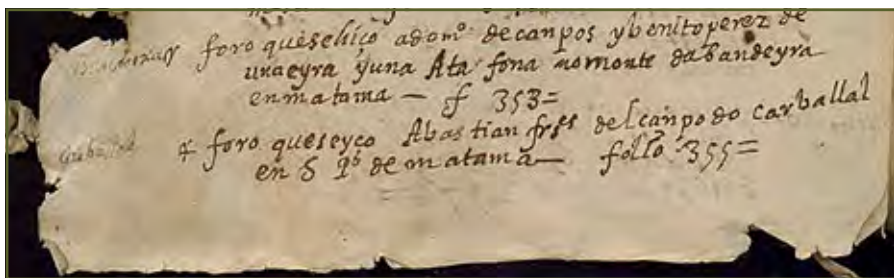 foro que se hiço a dom.º de canpos y benito perez de
una eyra y una Ata fona no monte da bandeyra
en matama — f 353=
Carballal
foro que se yço A bastian frss del canpo do carballal
en S P.º de matama — folio 355=